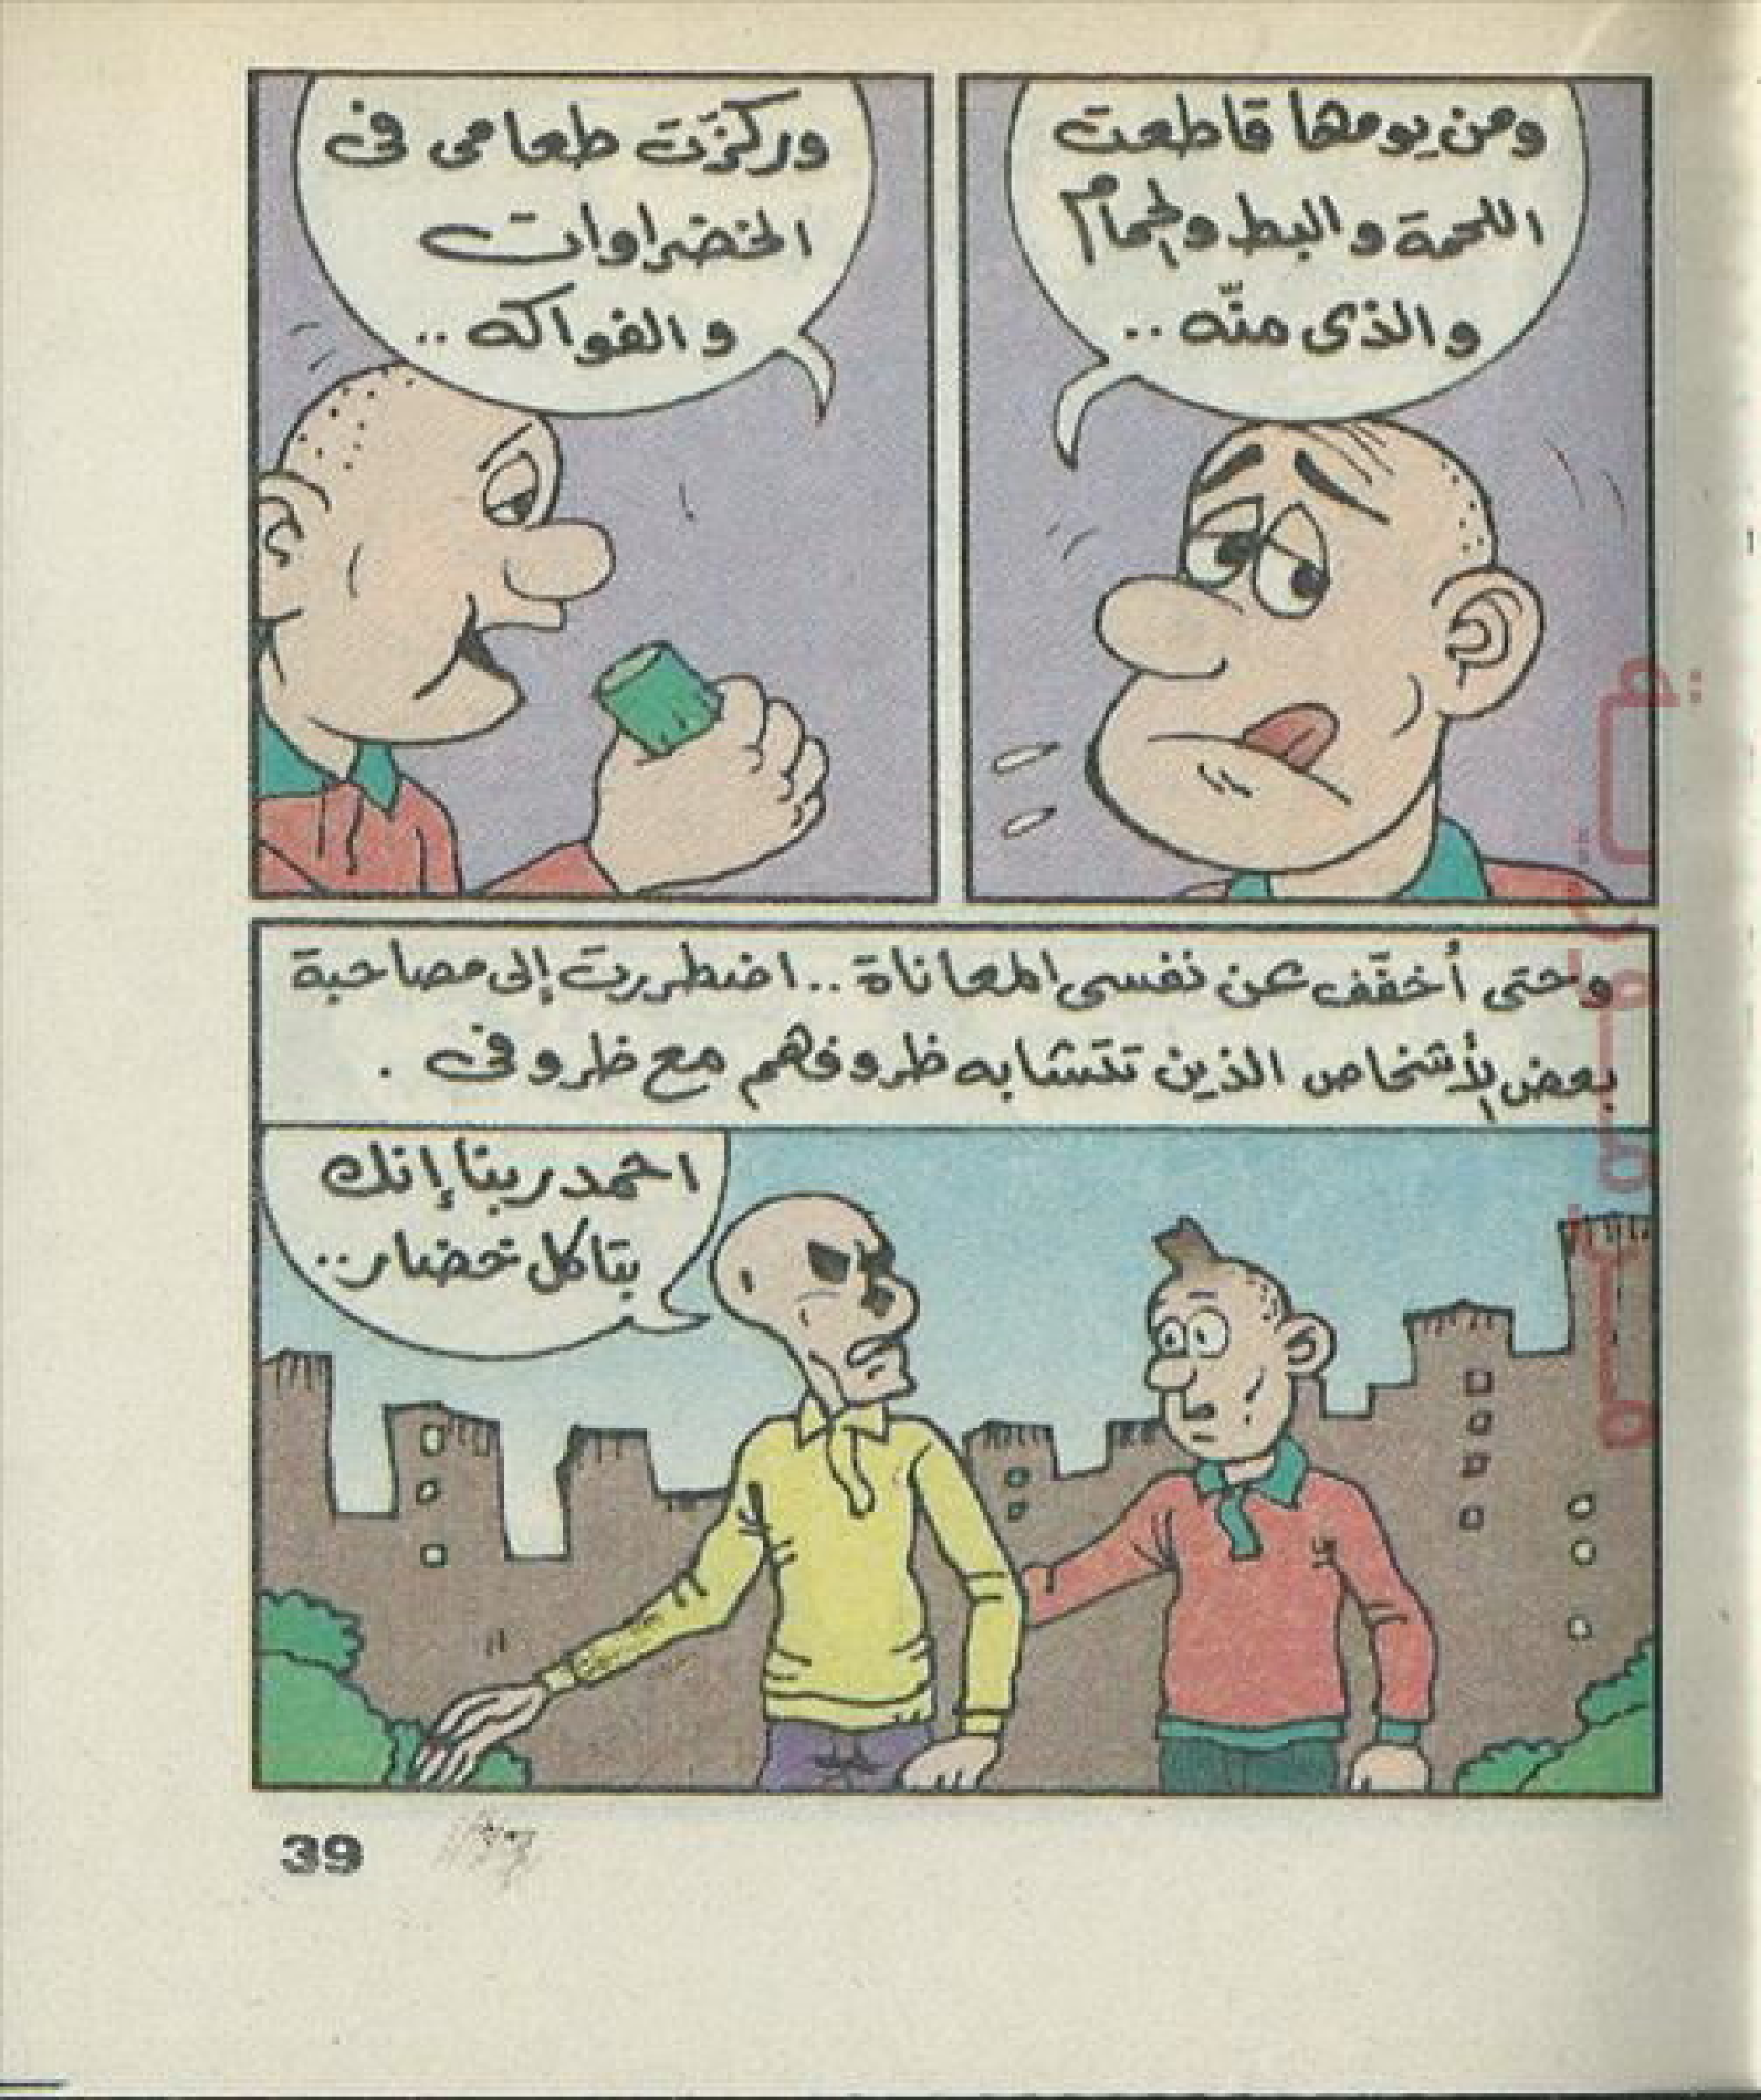 ومن يومها قاطعت
اللحمة والبط والحمام
والذى منّه ..
وركزّت طعامى فى
الخضراوات
والفواكه ..
وحتى أخفّف عن نفسى المعاناة .. اضطررت إلى مصاحبة
بعض الأشخاص الذين تتشابه ظروفهم مع ظروفى .
احمد ربنا إنك
بتاكل خضار ..
39